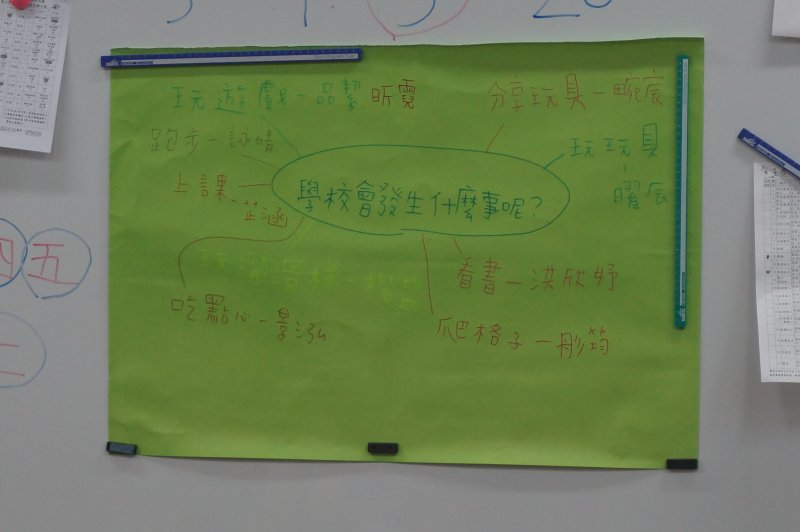 玩遊戲－品絜.昕霓
分享玩具－畹宸
跑步－詠晴
玩玩具－曜辰
上課－芷涵
學校會發生什麼事呢?
看書－洪欣妤
玩溜滑梯－楷
吃點心－景泓
爬格子－彤筠
四五